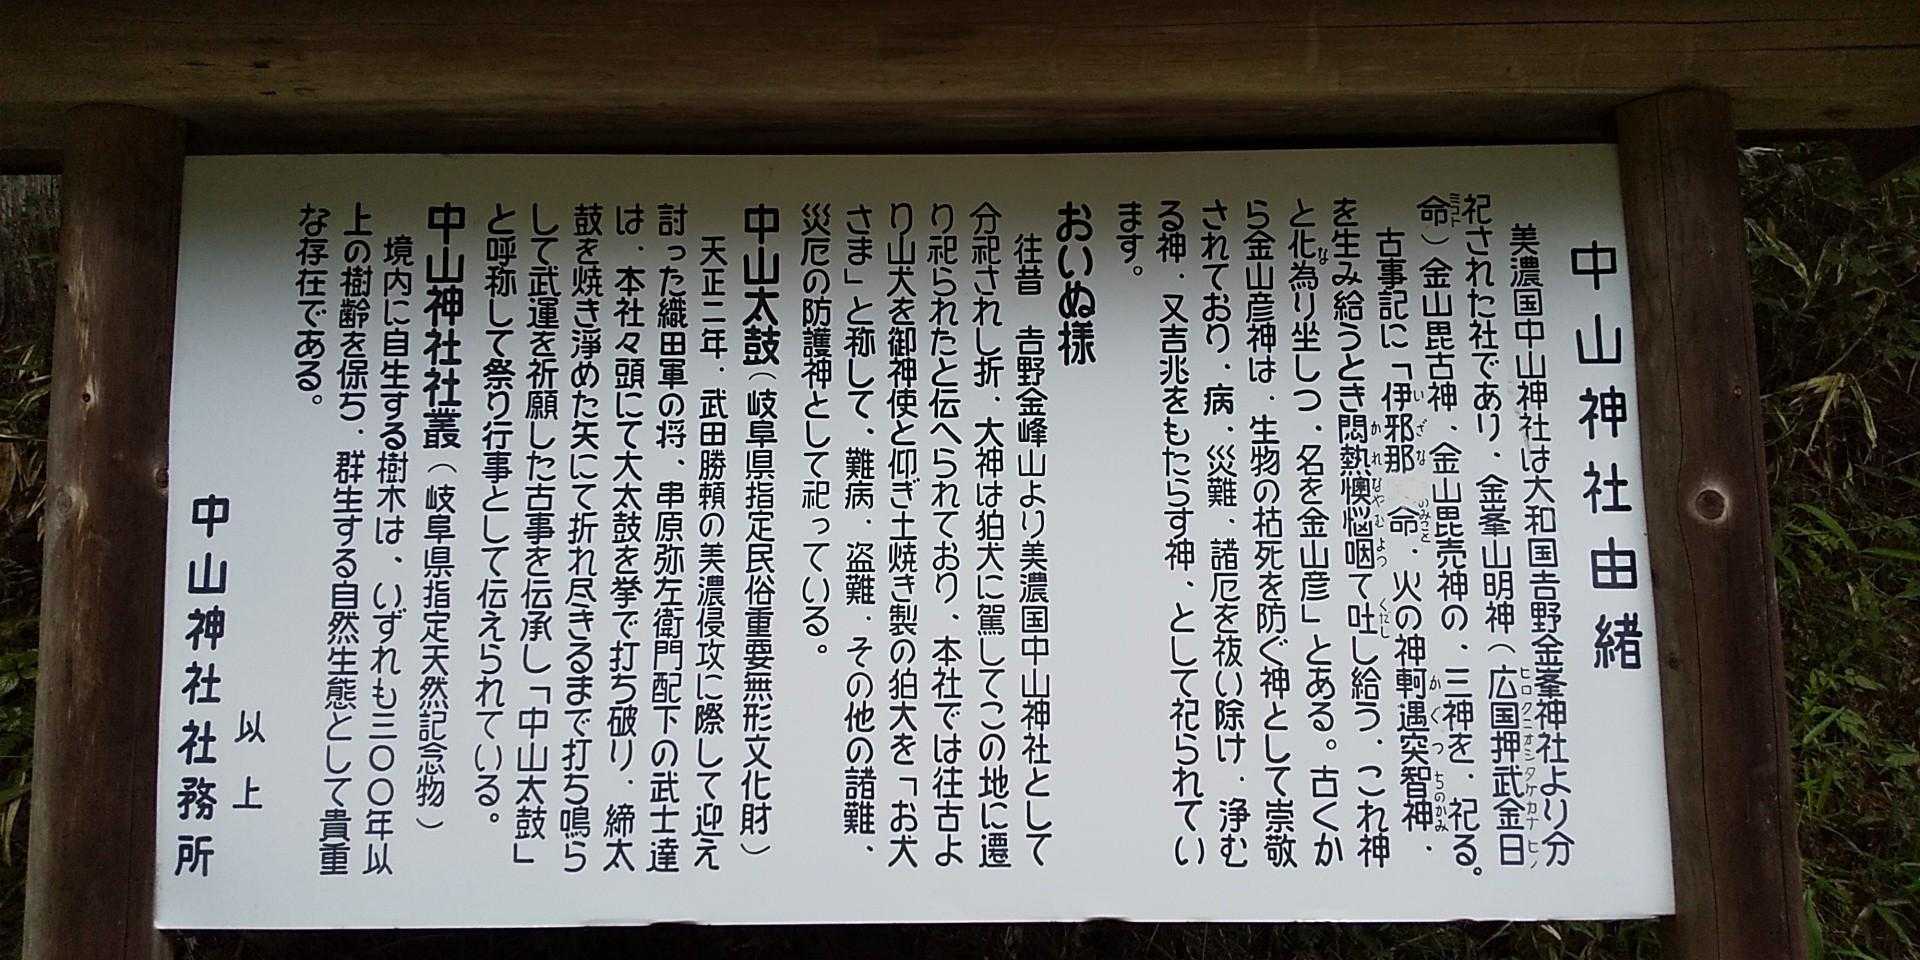 中山神社由緒
美濃国中山神社は大和国吉野金峯神社より分
祀された社であり、金峯山明神（広国押武金日
命）金山毘古神、金山毘売神の、三神を、祀る。
古事記に「伊邪那 命、火の神軻遇突智神、
を生み給うとき悶熱懊悩咽て吐し給う、これ神
と化為り坐しつ、名を金山彦」とある。古くか
ら金山彦神は、生物の枯死を防ぐ神として崇敬
されており、病、災難、諸厄を祓い除け、浄む
る神、又吉兆をもたらす神、として祀られてい
ます。
おいぬ様
往昔 吉野金峰山より美濃国中山神社として
分祀されし折、大神は狛犬に駕してこの地に遷
り祀られたと伝へられており、本社では往古よ
り山犬を御神使と仰ぎ土焼き製の狛犬を「お犬
さま」と称して、難病、盗難、その他の諸難、
災厄の防護神として祀っている。
中山太鼓（岐阜県指定民俗重要無形文化財）
天正二年、武田勝頼の美濃侵攻に際して迎え
討った織田軍の将、串原弥左衛門配下の武士達
は、本社々頭にて大太鼓を挙で打ち破り、締太
鼓を焼き淨めた矢にて折れ尽きるまで打ち鳴ら
して武運を祈願した古事を伝承し「中山太鼓」
と呼称して祭り行事として伝えられている。
中山神社社叢（岐阜県指定天然記念物）
境内に自生する樹木は、いずれも三〇〇年以
上の樹齢を保ち、群生する自然生態として貴重
な存在である。
以上
中山神社社務所